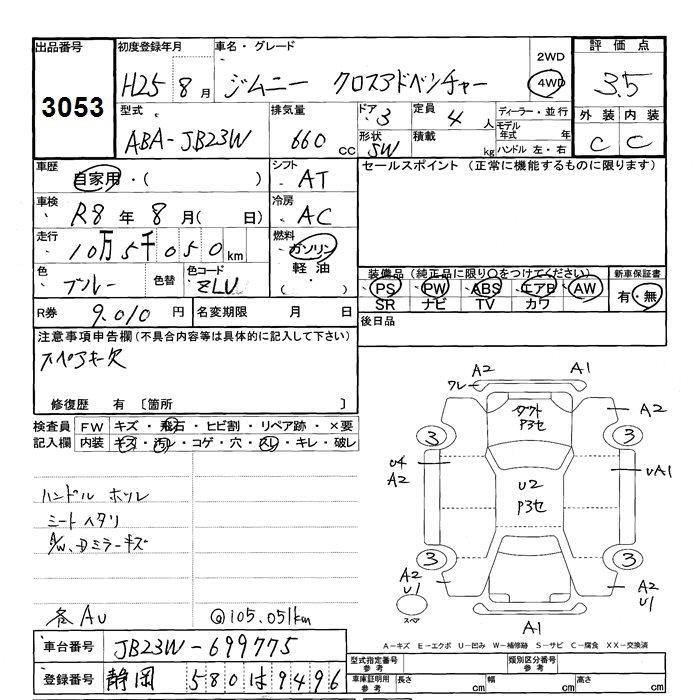 出品番号
3053
初度登録年月
H25 8 月
車名・グレード
ジムニー クロスアドベンチャー
2WD
4WD
評価点
3.5
型式
ABA-JB23W
排気量
660 cc
ドア
3
形状
SW
定員
4 人
積載
kg
ディーラー・並行
モデル年式 年
ハンドル 左・右
外装 内装
C C
車歴
自家用・( )
シフト
AT
車検
R8 年 8 月( 日)
冷房
AC
走行
10万5千050 km
燃料
ガソリン
軽油
( )
色
ブルー
色替
色コード
ZLV
R券
9.010 円
名変期限 月 日
セールスポイント (正常に機能するものに限ります)
装備品(純正品に限り○をつけてください)
PS PW ABS エアB AW
SR ナビ TV カワ
新車保証書
有・無
後日品
注意事項申告欄(不具合内容等は具体的に記入して下さい)
スペアキー欠
修復歴 有 〔箇所 〕
検査員記入欄
FW キズ・飛石・ヒビ割・リペア跡・×要
内装 キズ・汚レ・コゲ・穴・スレ・キレ・破レ
ハンドル ホツレ
シートヘタリ
A/W、Dミラーキズ
各AU
@105.051km
A2 A1
ワレ
ダクト
P3セ
A2
3 3
U4
A2
U2
P3セ
UA1
3 3
A2
U1
A2
U1
スペア
A1
A-キズ E-エクボ U-凹み W-補修跡 S-サビ C-腐食 XX-交換済
車台番号
JB23W-699775
登録番号
静岡 580 は 9496
型式指定番号
参考
類別区分番号
参考
車庫証明用
参考
長さ cm 幅 cm 高さ cm